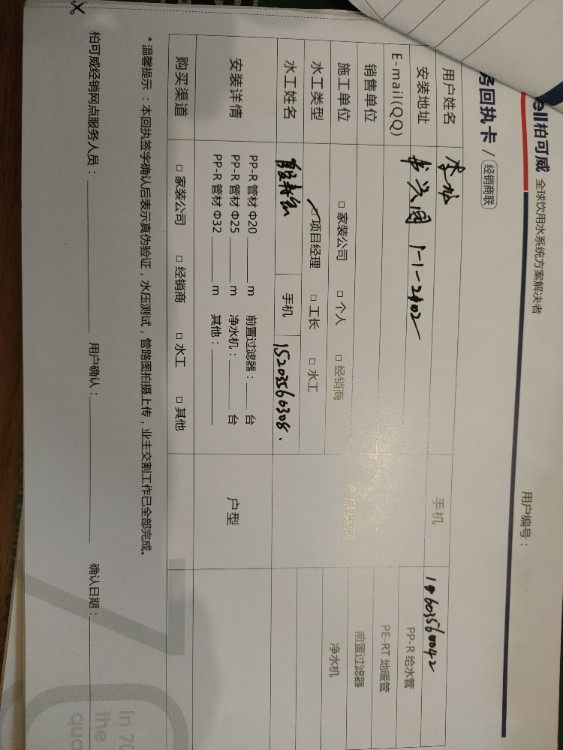 ell柏可威 全球饮用水系统方案解决者
务回执卡 / 经销商联
用户编号：
用户姓名
手机
安装地址 1-1-2402
E-mail(QQ)
销售单位
施工单位 □ 家装公司 □ 个人 □ 经销商
水工类型 项目经理 □ 工长 □ 水工
水工姓名 手机 15203560308.
PP-R 给水管
PE-RT 地暖管
前置过滤器
净水机
安装详情
PP-R 管材 Φ20 m 前置过滤器： 台
PP-R 管材 Φ25 m 净水机： 台
PP-R 管材 Φ32 m 其他：
户型
购买渠道 □ 家装公司 □ 经销商 □ 水工 □ 其他
* 温馨提示：本回执签字确认后表示真伪验证，水压测试，管路图拍摄上传，业主交割工作已全部完成。
柏可威经销网点服务人员： 用户确认： 确认日期：
In 70
the
qua